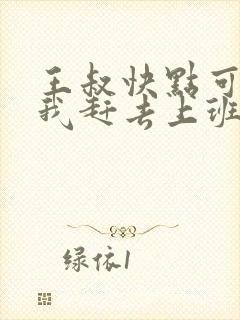 王叔快點可
我赶去上班
绿依1